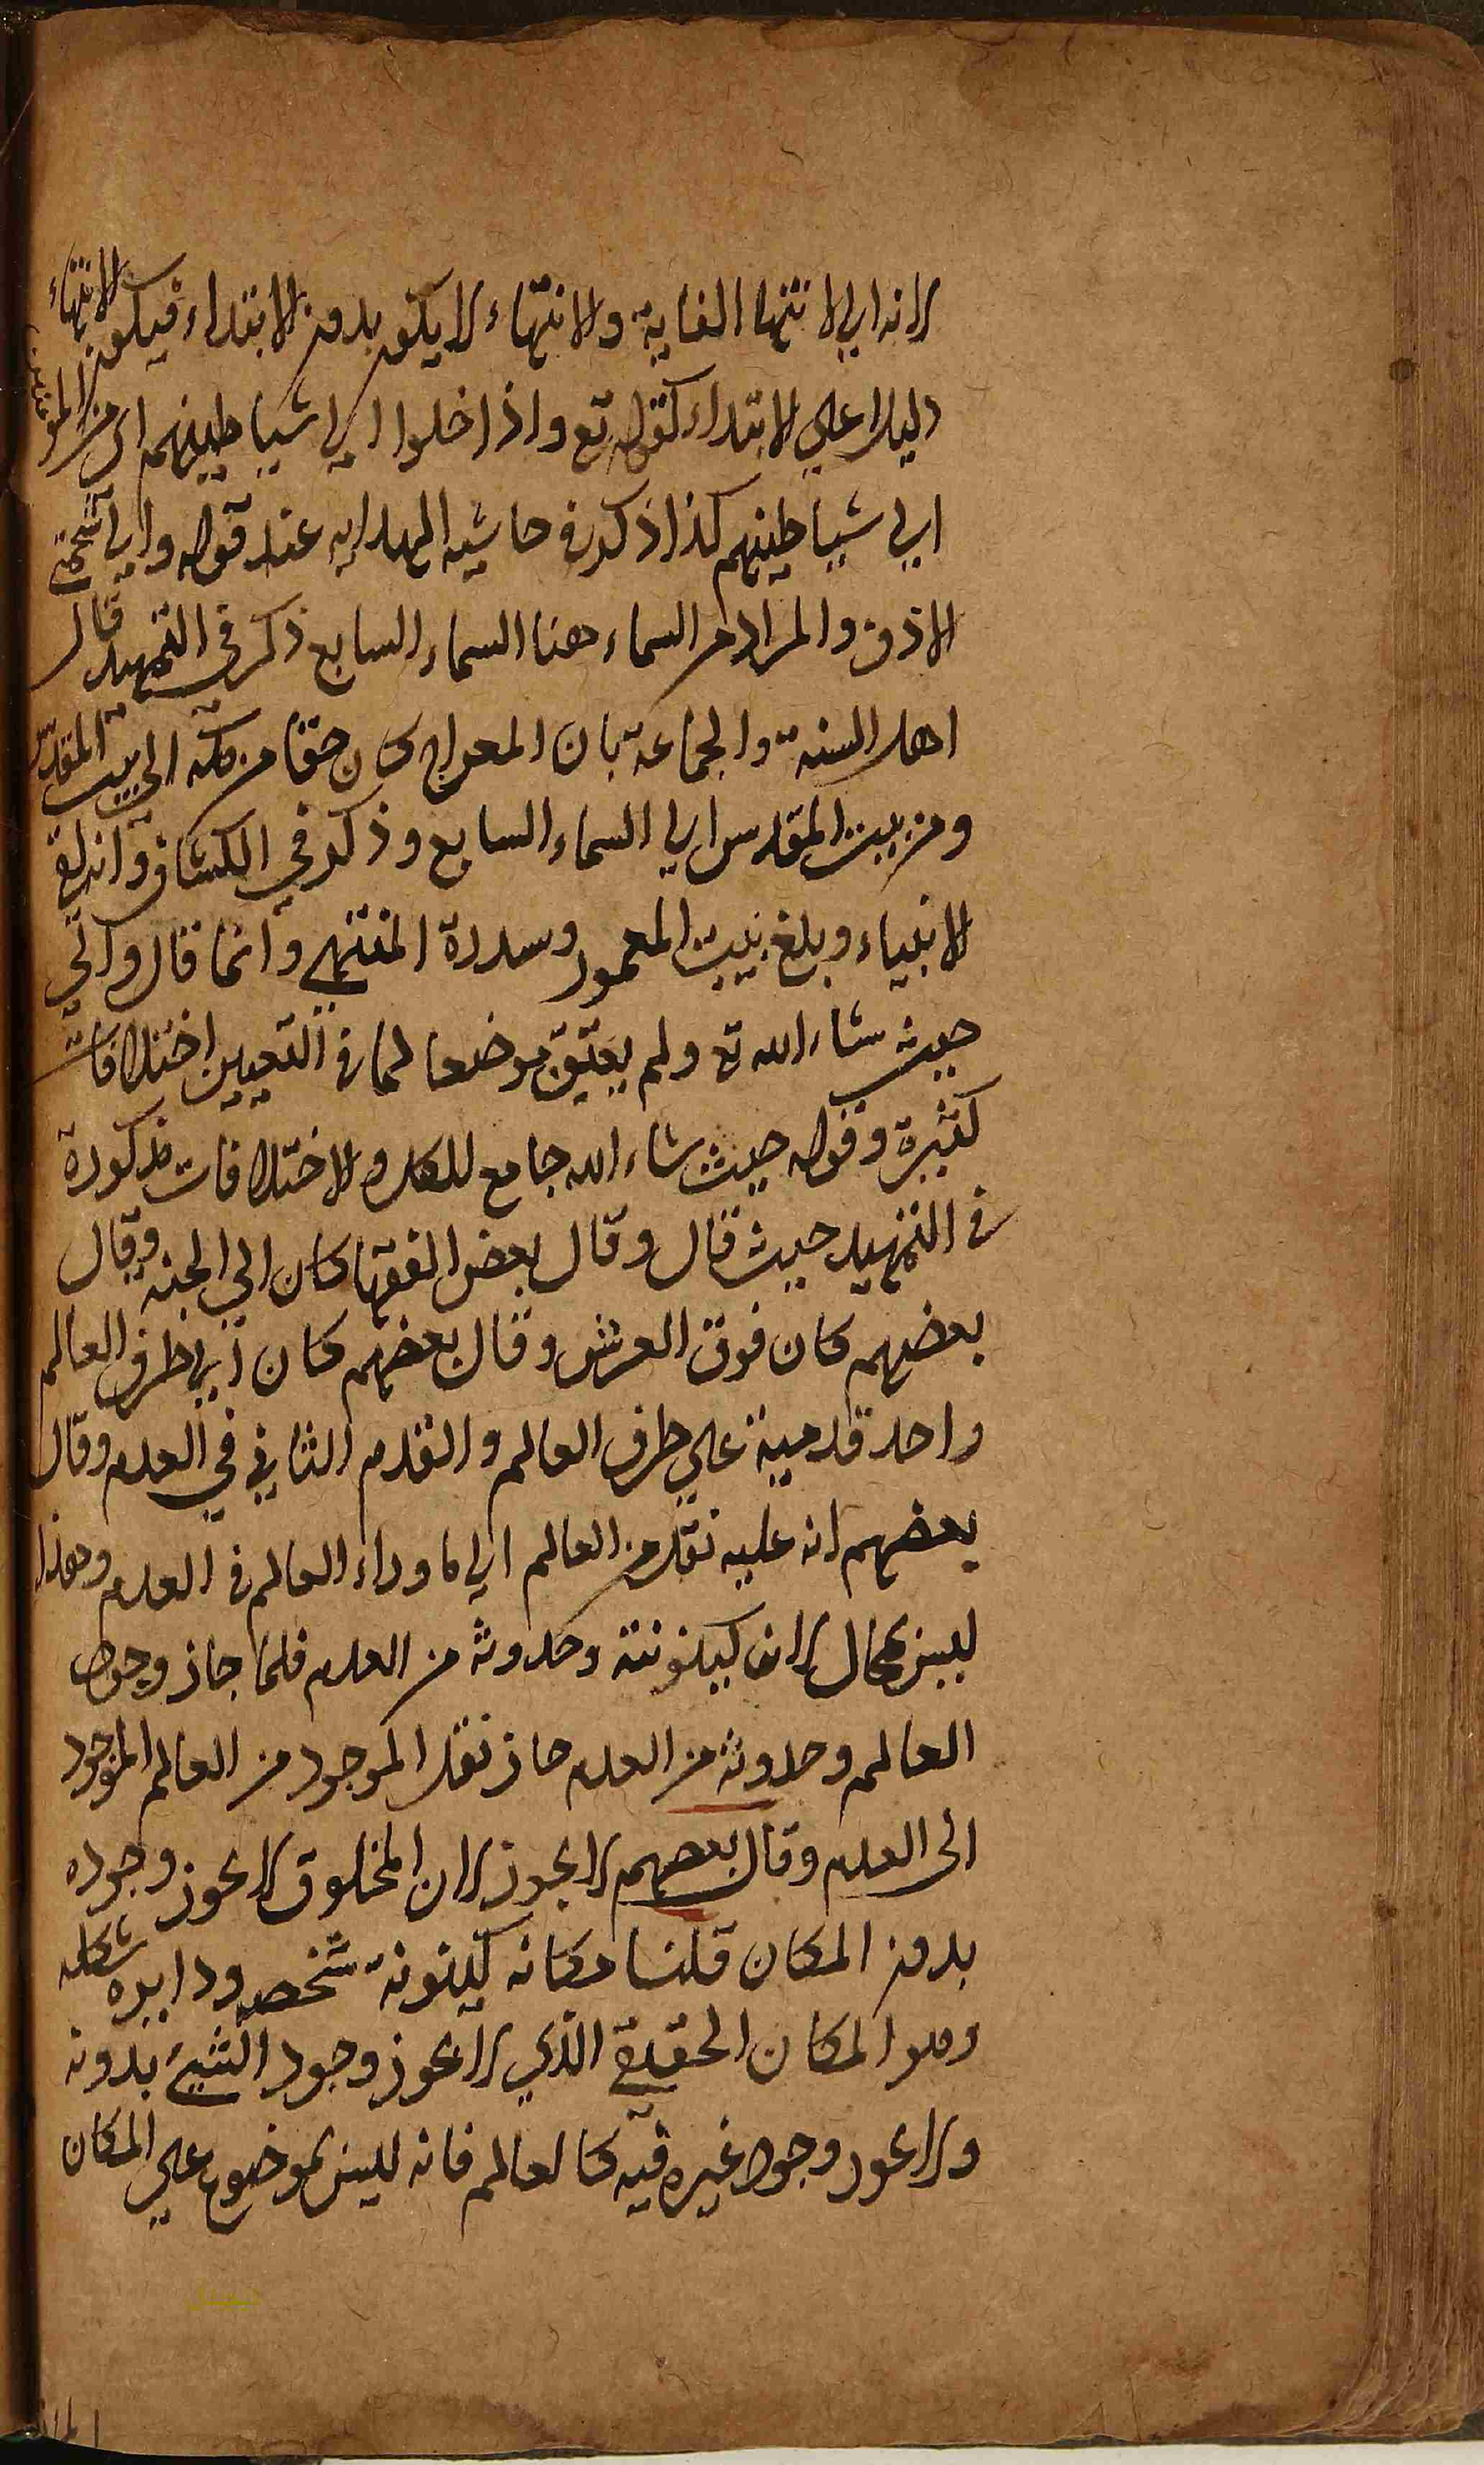 لانه الي لانتها الغاية والانتهاء لا يكون بدون الابتداء فيكون الانتهاء
دليلا علي الابتداء كقوله تع واذا خلوا الي شياطينهم اى من المؤمنين
الي شياطينهم كذا ذكر في حاشيه الهدايه عند قوله والي شحمتي
الاذن والمراد من السماء هنا السماء السابع ذكر في التمهيد قال
اهل السنة والجماعة بان المعراج كان حقا من مكه الي بيت المقدس
ومن بيت المقدس الي السماء السابع وذكر في الكشاف وانه لقي
الانبياء وبلغ بيت المعمور وسدرة المنتهي وانما قال والي
حيث شاء الله تع ولم يعين موضعا لما في التعيين اختلافات
كثيرة وقوله حيث شاء الله جامع للكل والاختلافات مذكورة
في التمهيد حيث قال وقال بعض الفقها كان الي الجنه وقال
بعضهم كان فوق العرش وقال بعضهم كان الي طرف العالم
واحد قدمية علي طرف العالم والقدم الثاني في العدم وقال
بعضهم انه عليه نقل من العالم الي ما وراء العالم في العدم وهذا
ليس بمحال لان كينونته وحدوثه من العدم فلما جاز وجود
العالم وحدوثه من العدم جاز نقل الموجود من العالم الموجود
الى العدم وقال بعضهم لا يجوز لان المخلوق لا يجوز وجوده
بدون المكان قلنا مكانه كينونة شخصه ودايره شكله
وهو المكان الحقيقي الذي لا يجوز وجود الشيئ بدونه
ولا يجوز وجود غيره فيه كالعالم فانه ليس بموضوع علي المكان